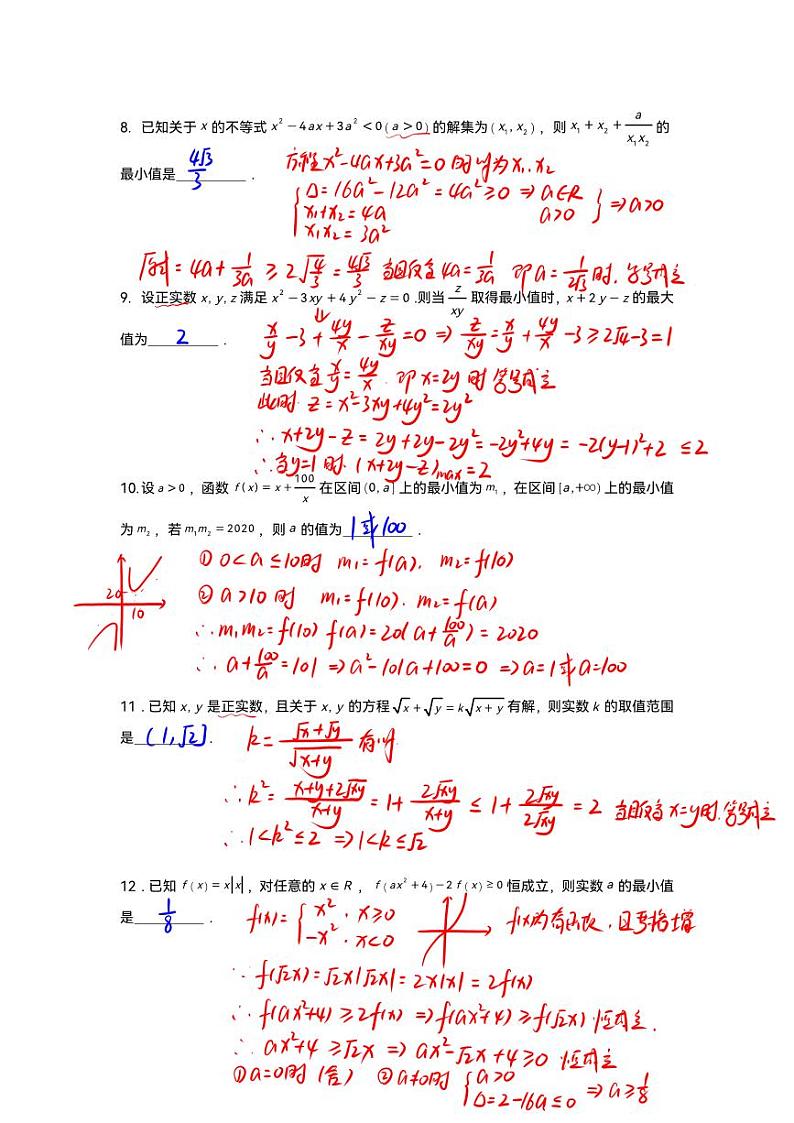 8. 已知关于 x 的不等式 x² - 4ax + 3a² < 0 (a > 0) 的解集为 (x₁, x₂)，则 x₁ + x₂ + a/(x₁x₂) 的
最小值是 4√3/3 .
方程x²-4ax+3a²=0 的解为x₁,x₂
Δ=16a²-12a²=4a²≥0 ⇒ a∈R
x₁+x₂=4a a>0 ⇒a>0
x₁x₂=3a²
原式=4a+1/(3a) ≥ 2√(4/3) = 4√3/3 当且仅当4a=1/(3a) 即a=1/(2√3)时，等号成立
9. 设正实数 x, y, z 满足 x² - 3xy + 4y² - z = 0 .则当 z/(xy) 取得最小值时，x + 2y - z 的最大
值为 2 .
x/y - 3 + 4y/x - z/(xy) = 0 ⇒ z/(xy) = x/y + 4y/x - 3 ≥ 2√4 - 3 = 1
当且仅当 x/y = 4y/x 即 x=2y 时 等号成立
此时 z = x²-3xy+4y² = 2y²
∴ x+2y-z = 2y+2y-2y² = -2y²+4y = -2(y-1)²+2 ≤2
∴当y=1时，(x+2y-z)max=2
10.设 a > 0 ，函数 f(x) = x + 100/x 在区间 (0, a] 上的最小值为 m₁ ，在区间 [a,+∞) 上的最小值
为 m₂ ，若 m₁m₂ = 2020 ，则 a 的值为 1或100 .
① 0<a≤10时 m₁=f(a), m₂=f(10)
20
10
② a>10时 m₁=f(10), m₂=f(a)
∴ m₁m₂=f(10)f(a)=20(a+100/a)=2020
∴ a+100/a=101 ⇒a²-101a+100=0 ⇒a=1或a=100
11．已知 x, y 是正实数，且关于 x, y 的方程 √x + √y = k√(x + y) 有解，则实数 k 的取值范围
是 (1,√2] .
k= (√x+√y)/√(x+y) 有解
∴k²= (x+y+2√xy)/(x+y) = 1+ 2√xy/(x+y) ≤ 1+ 2√xy/(2√xy) = 2 当且仅当x=y时,等号成立
∴1<k²≤2 ⇒1<k≤√2
12．已知 f(x) = x|x| ，对任意的 x ∈ R ， f(ax² + 4) - 2f(x) ≥ 0 恒成立，则实数 a 的最小值
是 1/8 .
f(x)= { x², x≥0
-x², x<0
f(x)为奇函数，且严格增
∵ f(√2x)=√2x|√2x|=2x|x|=2f(x)
∴ f(ax²+4)≥2f(x) ⇒f(ax²+4)≥f(√2x)恒成立.
∴ ax²+4≥√2x ⇒ ax²-√2x+4≥0 恒成立
①a=0时 (舍) ②a≠0时 { a>0
Δ=2-16a≤0 ⇒a≥1/8